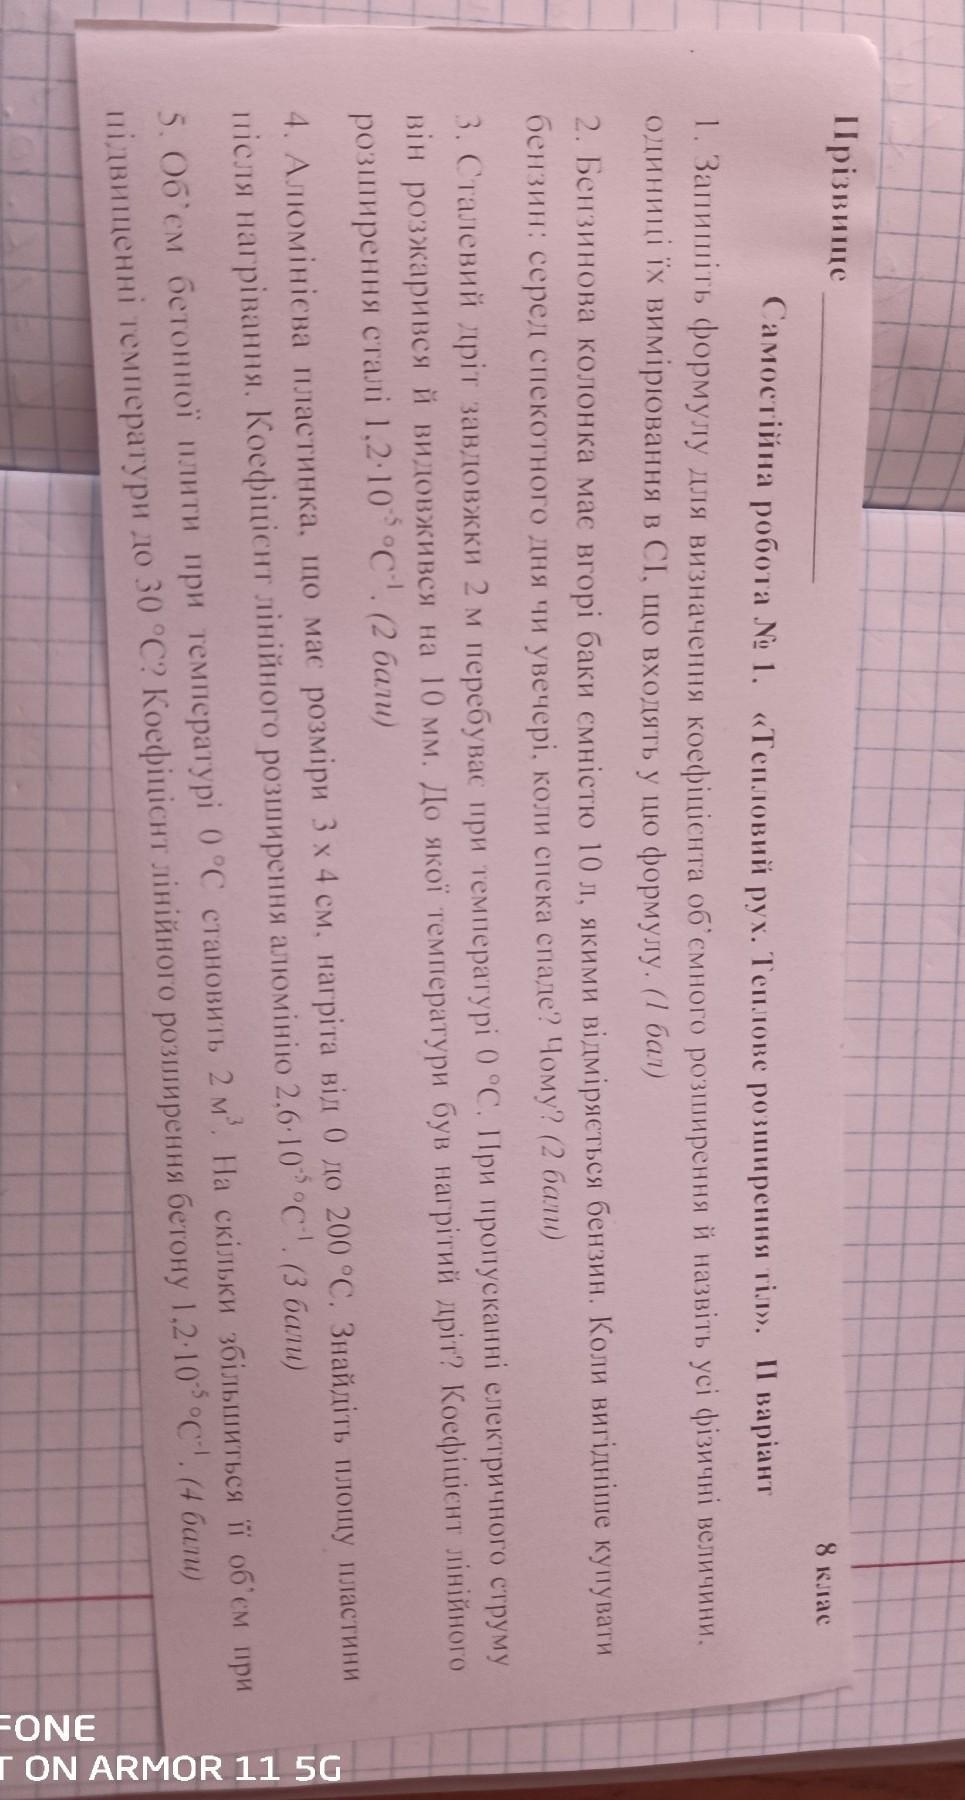 Прізвище
8 клас
Самостійна робота № 1. «Тепловий рух. Теплове розширення тіл». ІІ варіант
1. Запишіть формулу для визначення коефіцієнта об'ємного розширення й назвіть усі фізичні величини,
одиниці їх вимірювання в СІ, що входять у цю формулу. (1 бал)
2. Бензинова колонка має вгорі баки ємністю 10 л, якими відміряється бензин. Коли вигідніше купувати
бензин: серед спекотного дня чи увечері, коли спека спаде? Чому? (2 бали)
3. Сталевий дріт завдовжки 2 м перебуває при температурі 0 °C. При пропусканні електричного струму
він розжарився й видовжився на 10 мм. До якої температури був нагрітий дріт? Коефіцієнт лінійного
розширення сталі 1,2·10⁻⁵ °C⁻¹. (2 бали)
4. Алюмінієва пластинка, що має розміри 3 x 4 см, нагріта від 0 до 200 °C. Знайдіть площу пластини
після нагрівання. Коефіцієнт лінійного розширення алюмінію 2,6·10⁻⁵ °C⁻¹. (3 бали)
5. Об'єм бетонної плити при температурі 0 °C становить 2 м³. На скільки збільшиться її об'єм при
підвищенні температури до 30 °C? Коефіцієнт лінійного розширення бетону 1,2·10⁻⁵ °C⁻¹. (4 бали)
FONE
T ON ARMOR 11 5G